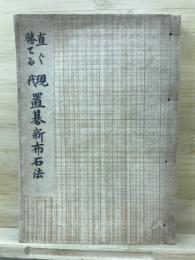 直ぐ勝てる
現代置碁新布石法